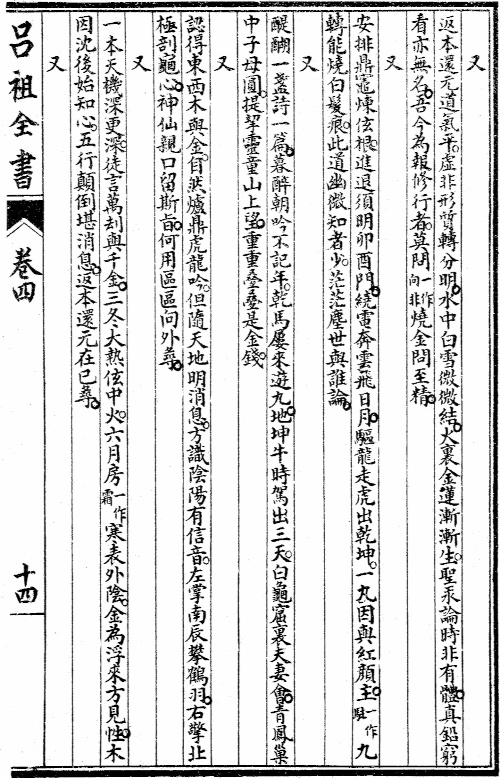 又
返本還元道氣平。虛非形質轉分明。水中白雪微微結。火裏金蓮漸漸生。聖汞論時非有體。真鉛窮
看亦無名。吾今為報修行者。莫問一作向非燒金問至精。
又
安排鼎竈煉玄根。進退須明卯酉門。繞電奔雲飛日月。驅龍走虎出乾坤。一丸因與紅顏主。一作駐九
轉能燒白髮痕。此道幽微知者少。茫茫塵世與誰論。
又
醍醐一盞詩一篇。暮醉朝吟不記年。乾馬屢來遊九地。坤牛時駕出三天。白龜窟裏夫妻會。青鳳巢
中子母圓。提挈靈童山上望。重重疊疊是金錢。
又
認得東西木與金。自然爐鼎虎龍吟。但隨天地明消息。方識陰陽有信音。左掌南辰攀鶴羽。右擎北
極剖龜心。神仙親口留斯旨。何用區區向外尋。
又
一本天機深更深。徒言萬刦與千金。三冬大熱弦中火。六月房一作霜寒表外陰。金為浮來方見性。木
因沈後始知心。五行顛倒堪消息。返本還元在已尋。
又
呂祖全書
卷四
十四